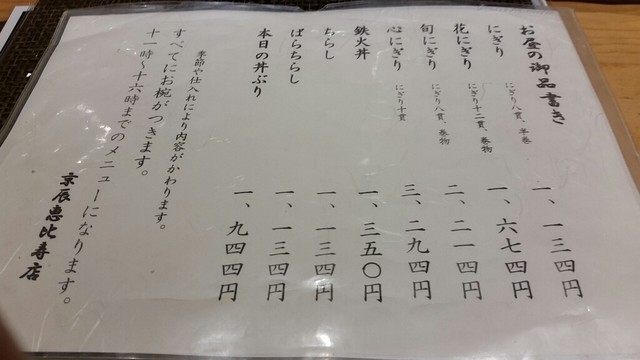 お昼の御品書き
にぎり にぎり八貫、半巻 一、一三四円
花にぎり にぎり十二貫、巻物 一、六七四円
旬にぎり にぎり八貫、巻物 二、二一四円
心にぎり にぎり十貫 三、二九四円
鉄火丼 一、三五〇円
ちらし 一、一三四円
ばらちらし 一、一三四円
本日の丼ぶり 一、九四四円
季節や仕入れにより内容がかわります。
すべてにお椀がつきます。
十一時~十六時までのメニューになります。
京辰恵比寿店